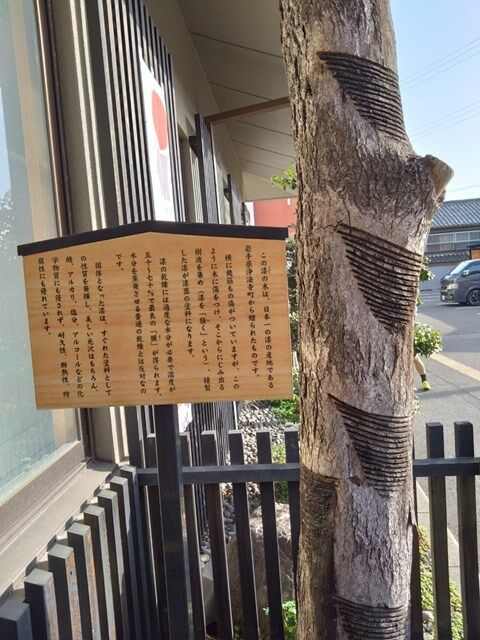 この漆の木は、日本一の漆の産地である
岩手県浄法寺町から贈られたものです。
横に幾筋もの傷がついていますが、この
ように木に傷をつけ、そこからにじみ出る
樹液を集め（漆を「掻く」という）、精製
した漆が漆器の塗料になります。
漆の乾燥には適度な水分が必要で湿度が
五十～七十％で最良の「膜」が得られます。
水分を蒸発させる普通の乾燥とは反対なの
です。
固体となった漆は、すぐれた塗料として
の性質を発揮し、美しい光沢はもちろん、
酸、アルカリ、塩分、アルコールなどの化
学物質にも侵されず、耐久性、断熱性、防
腐性にも優れています。